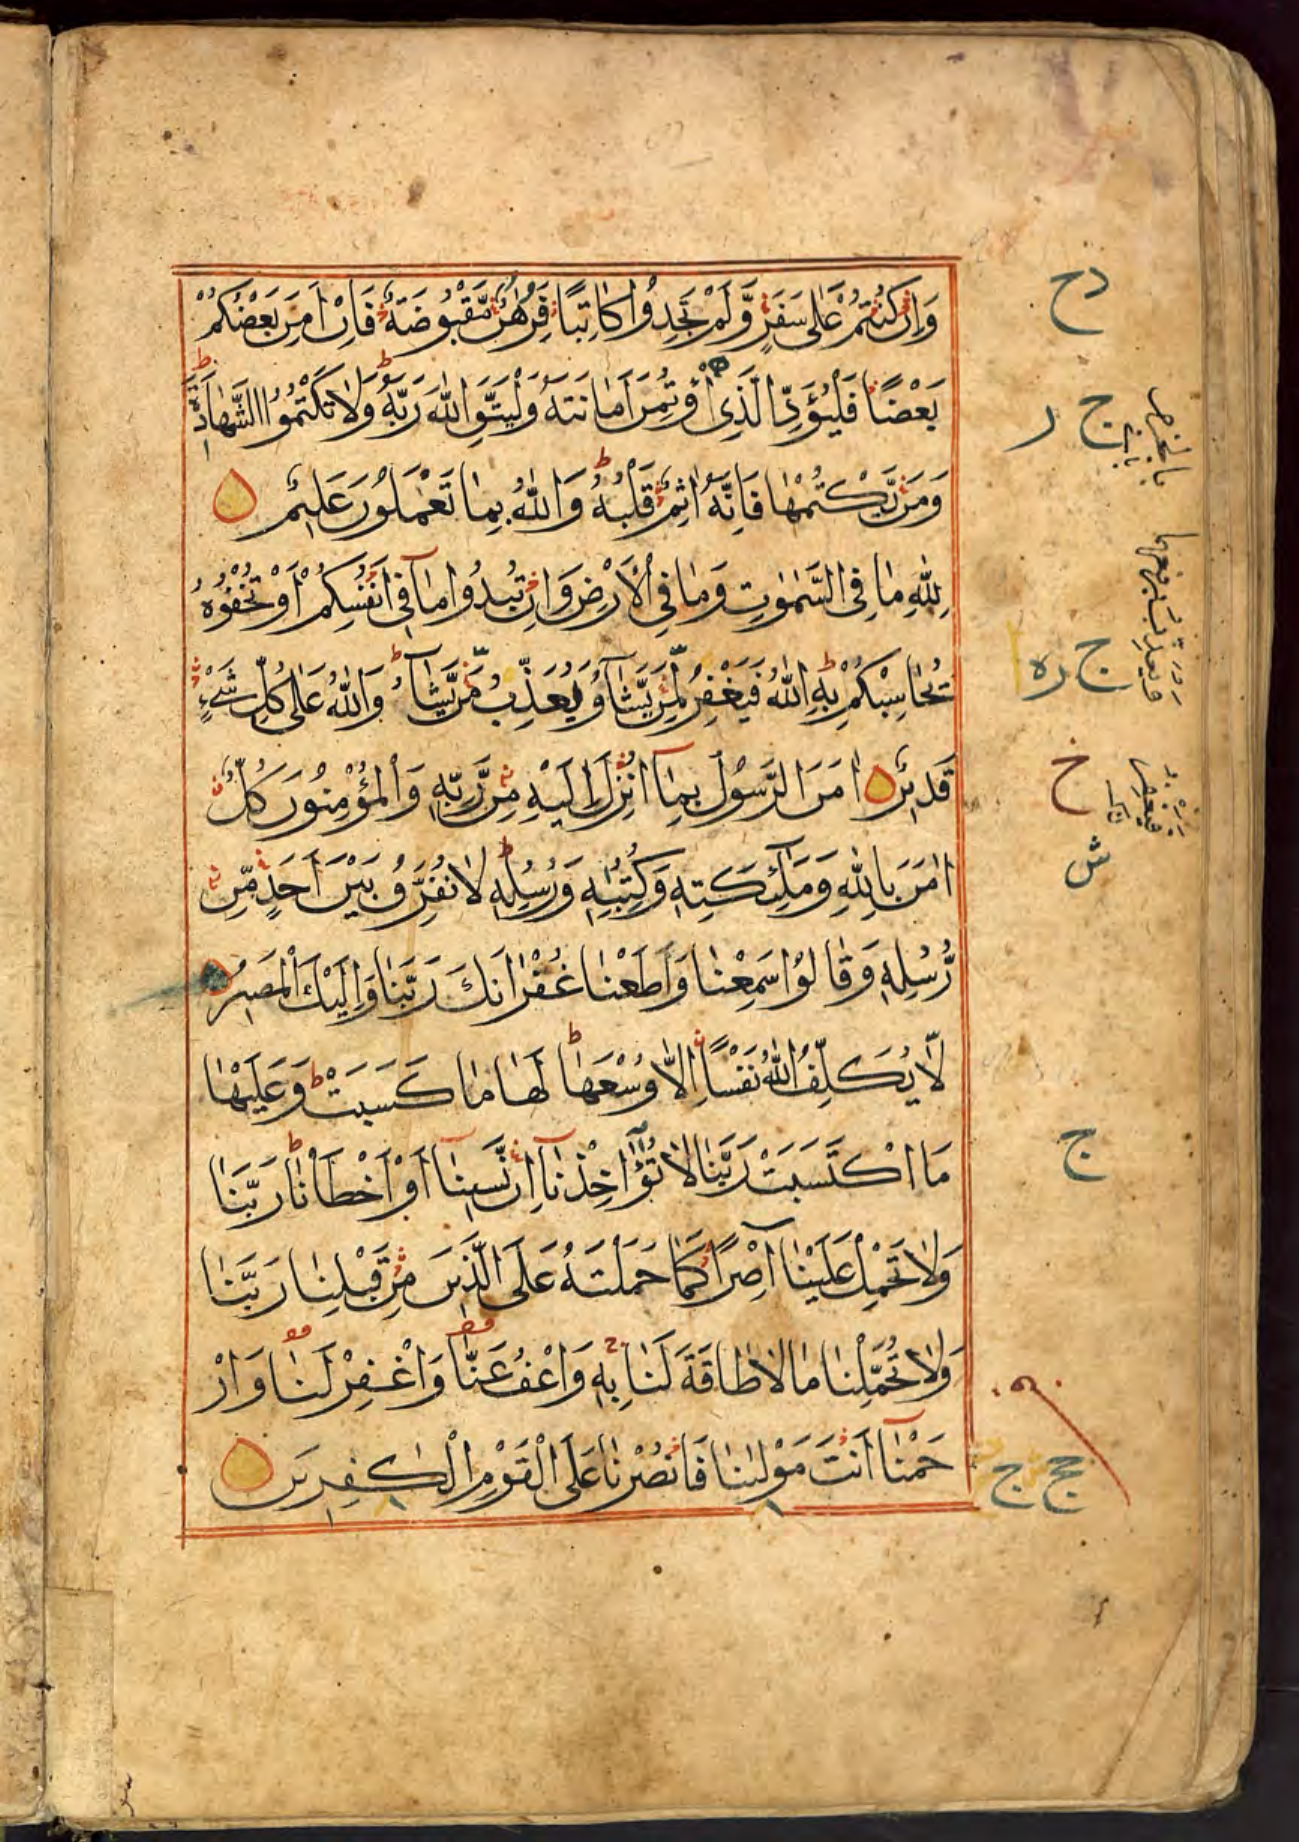 وَاِنْ كُنْتُمْ عَلٰى سَفَرٍ وَّلَمْ تَجِدُوْا كَاتِبًا فَرِهٰنٌ مَّقْبُوْضَةٌ فَاِنْ اَمِنَ بَعْضُكُمْ
بَعْضًا فَلْيُؤَدِّ الَّذِى اؤْتُمِنَ اَمَانَتَهٗ وَلْيَتَّقِ اللّٰهَ رَبَّهٗ وَلَا تَكْتُمُوا الشَّهَادَةَ
وَمَنْ يَّكْتُمْهَا فَاِنَّهٗ اٰثِمٌ قَلْبُهٗ وَاللّٰهُ بِمَا تَعْمَلُوْنَ عَلِيْمٌ
لِلّٰهِ مَا فِى السَّمٰوٰتِ وَمَا فِى الْاَرْضِ وَاِنْ تُبْدُوْا مَا فِىْ اَنْفُسِكُمْ اَوْ تُخْفُوْهُ
يُحَاسِبْكُمْ بِهِ اللّٰهُ فَيَغْفِرُ لِمَنْ يَّشَآءُ وَيُعَذِّبُ مَنْ يَّشَآءُ وَاللّٰهُ عَلٰى كُلِّ شَىْءٍ
قَدِيْرٌ اٰمَنَ الرَّسُوْلُ بِمَآ اُنْزِلَ اِلَيْهِ مِنْ رَّبِّهٖ وَالْمُؤْمِنُوْنَ كُلٌّ
اٰمَنَ بِاللّٰهِ وَمَلٰٓئِكَتِهٖ وَكُتُبِهٖ وَرُسُلِهٖ لَا نُفَرِّقُ بَيْنَ اَحَدٍ مِّنْ
رُّسُلِهٖ وَقَالُوْا سَمِعْنَا وَاَطَعْنَا غُفْرَانَكَ رَبَّنَا وَاِلَيْكَ الْمَصِيْرُ
لَا يُكَلِّفُ اللّٰهُ نَفْسًا اِلَّا وُسْعَهَا لَهَا مَا كَسَبَتْ وَعَلَيْهَا
مَا اكْتَسَبَتْ رَبَّنَا لَا تُؤَاخِذْنَآ اِنْ نَّسِيْنَآ اَوْ اَخْطَاْنَا رَبَّنَا
وَلَا تَحْمِلْ عَلَيْنَآ اِصْرًا كَمَا حَمَلْتَهٗ عَلَى الَّذِيْنَ مِنْ قَبْلِنَا رَبَّنَا
وَلَا تُحَمِّلْنَا مَا لَا طَاقَةَ لَنَا بِهٖ وَاعْفُ عَنَّا وَاغْفِرْ لَنَا وَارْ
حَمْنَآ اَنْتَ مَوْلٰىنَا فَانْصُرْنَا عَلَى الْقَوْمِ الْكٰفِرِيْنَ
دح
ج ر
ج ره
خ
ش
ج
ج